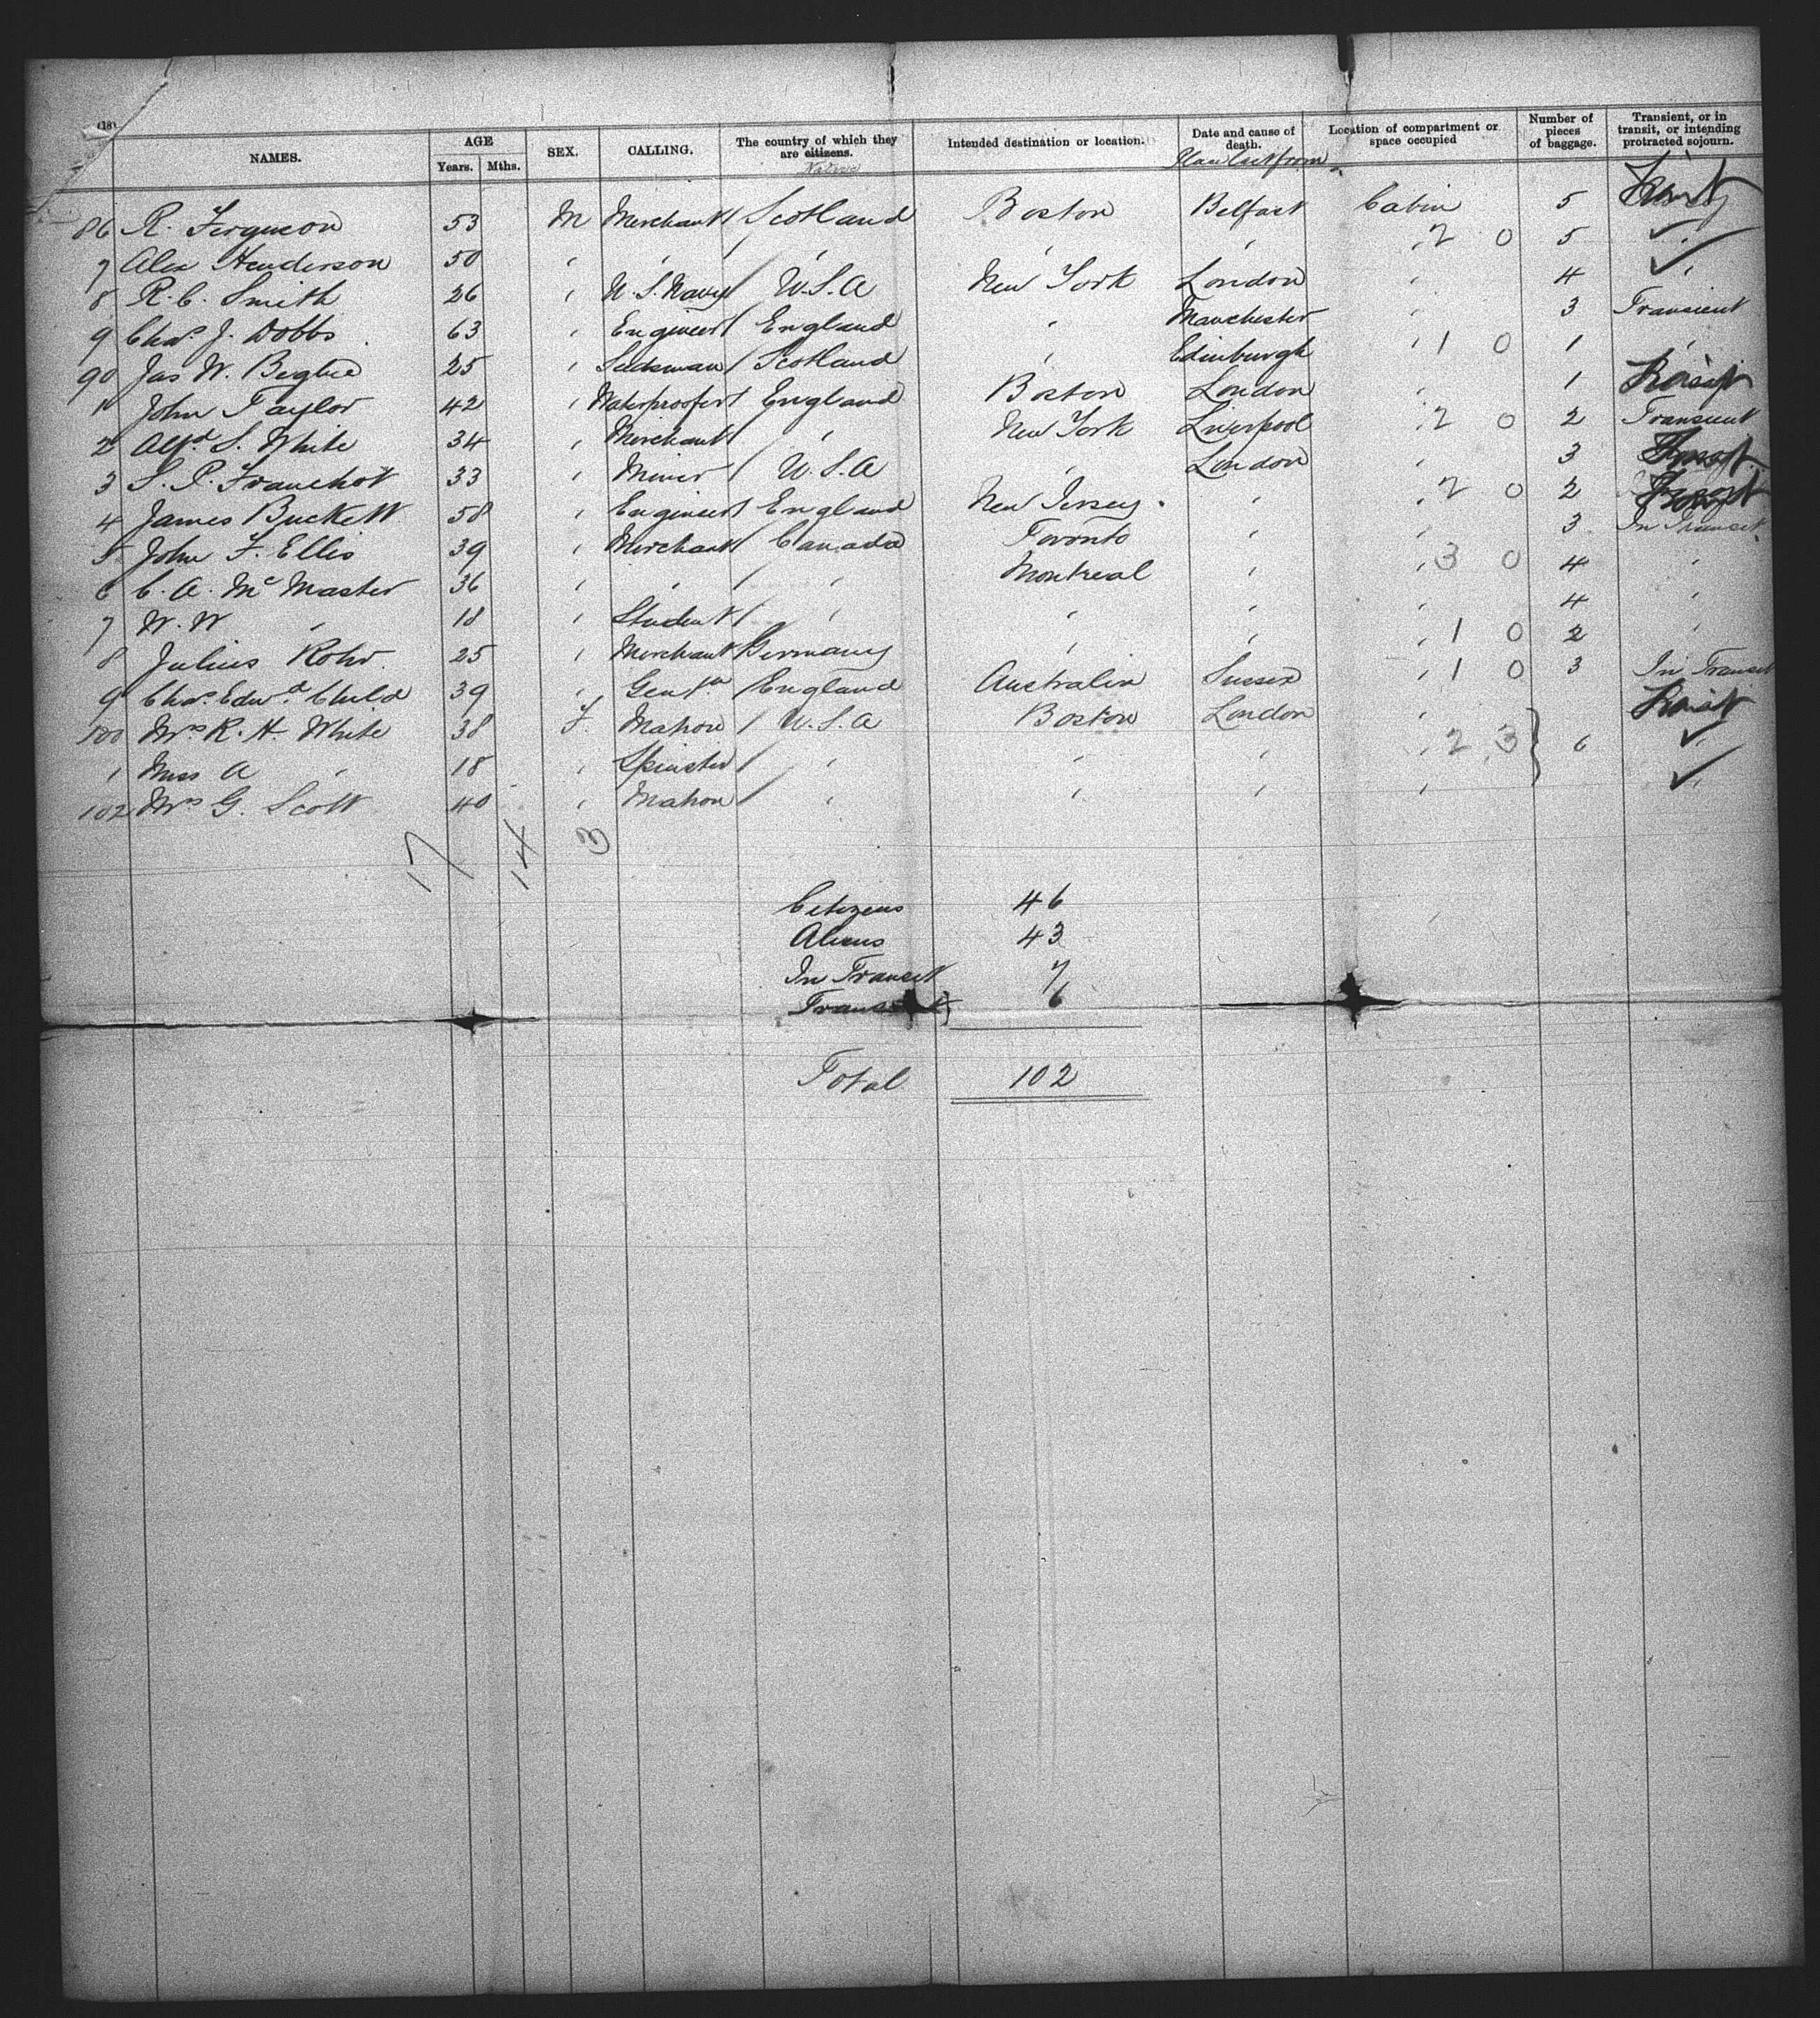 (18)
NAMES. AGE Years. Mths. SEX. CALLING. The country of which they are citizens. Native Intended destination or location. Date and cause of death. Place last from Location of compartment or space occupied Number of pieces of baggage. Transient, or in transit, or intending protracted sojourn.
86 R. Ferguson 53 M Merchant Scotland Boston Belfast Cabin 5
7 Alex Henderson 50 " " " " " " 2 0 5 ✓
8 R. C. Smith 26 " U.S. Navy U.S.A New York London " 4 ✓ "
9 Chas. J. Dobbs 63 " Engineer England " Manchester " 3 Transient
90 Jas W. Beglie 25 " Seedsman Scotland " Edinburgh " 1 0 1 "
1 John Taylor 42 " Waterproofer England Boston London " 1
2 Alfd. S. White 34 " Merchant " New York Liverpool " 2 0 2 Transient
3 S. P. Franchot 33 " Miner U.S.A " London " 3
4 James Buckett 58 " Engineer England New Jersey " " 2 0 2
5 John F. Ellis 39 " Merchant Canada Toronto " " 3 In Transit
6 C. A. McMaster 36 " " " Montreal " " 3 0 4 "
7 W. W " 18 " Student " " " " 4 "
8 Julius Rohr 25 " Merchant Germany " " " 1 0 2 "
9 Chas. Edwd. Child 39 " Gentn England Australia Sussex " 1 0 3 In Transit
100 Mrs R. H. White 38 F. Matron U.S.A Boston London "
1 Miss A " 18 " Spinster " " " " 2 3 } 6 ✓
102 Mrs G. Scott 40 " Matron " " " " ✓
17 14 3
Citizens 46
Aliens 43
In Transit 7
Transient } 6
Total 102